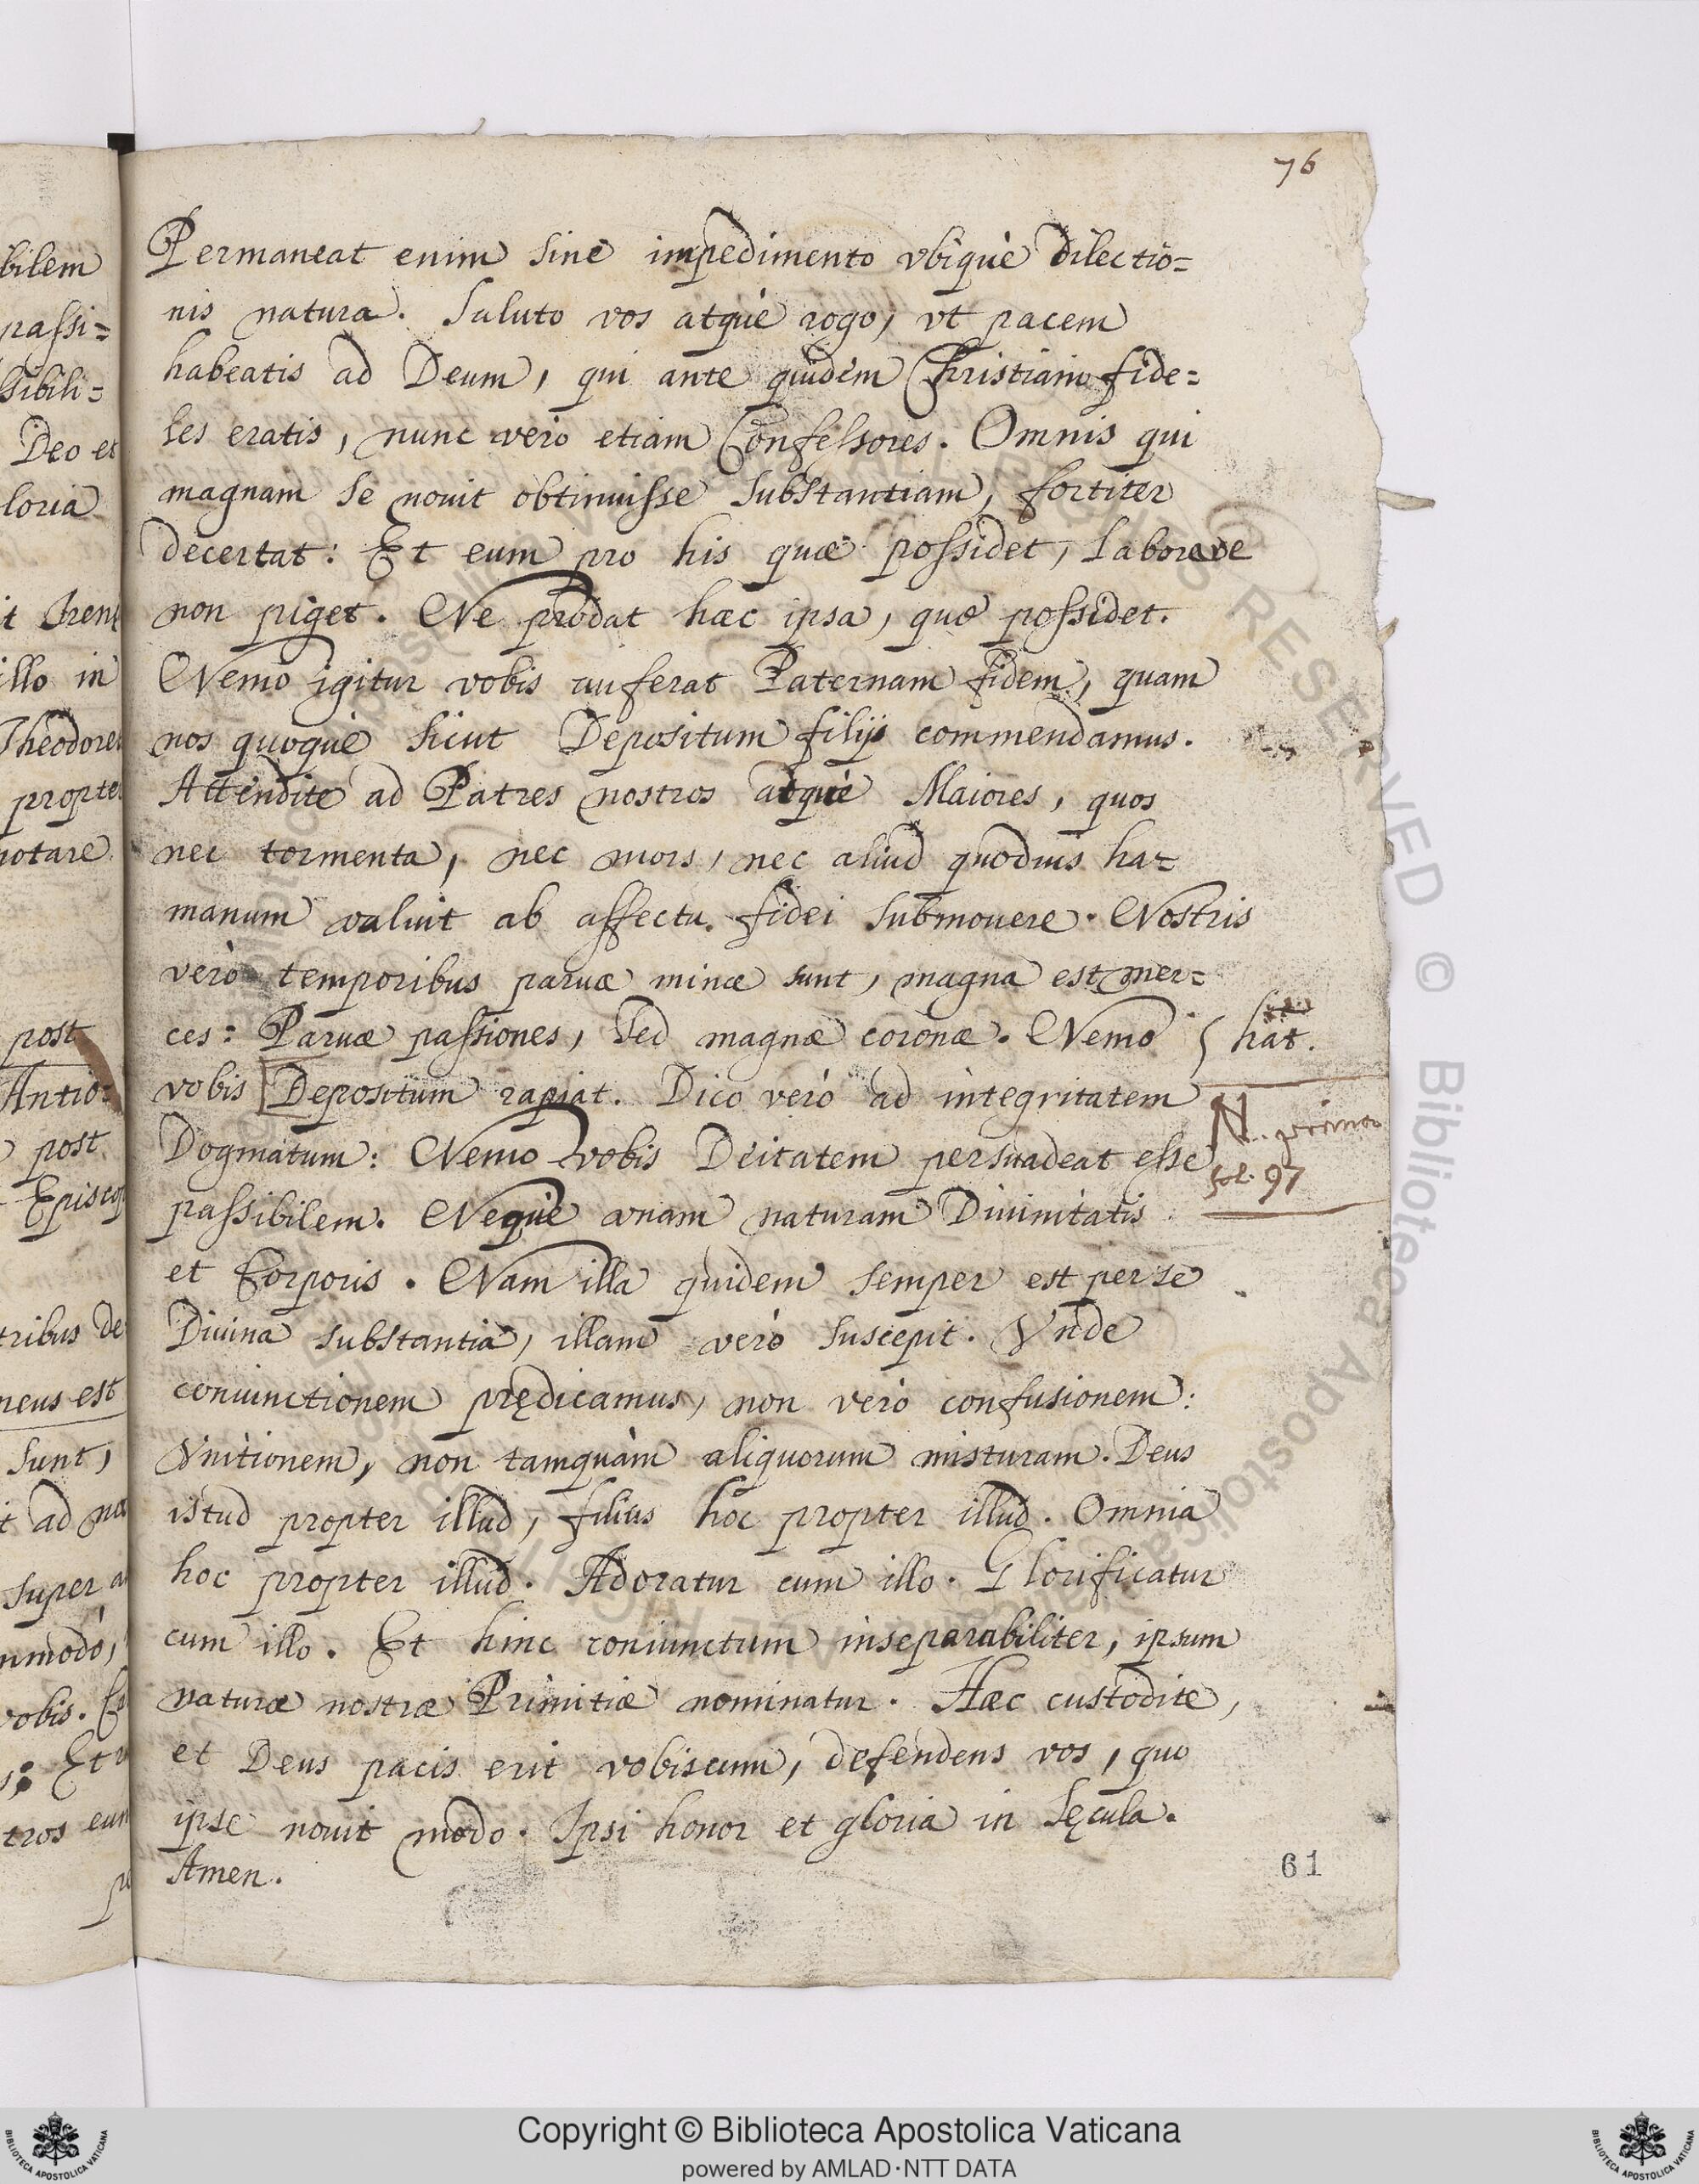 76
Permaneat enim sine impedimento vbique dilectio=
nis natura. Saluto vos atque rogo, vt pacem
habeatis ad Deum, qui ante quidem Christiani fide=
les eratis, nunc vero etiam Confessores. Omnis qui
magnam se nouit obtinuisse substantiam, fortiter
decertat: Et eum pro his quæ possidet, laborare
non piget. Ne prodat hæc ipsa, quæ possidet.
Nemo igitur vobis auferat Paternam fidem, quam
nos quoque sicut Depositum filijs commendamus.
Attendite ad Patres nostros atque Maiores, quos
nec tormenta, nec mors, nec aliud quoduis ha=
manum valuit ab affectu fidei submouere. Nostris
verò temporibus paruæ minæ sunt, magna est mer=
ces: Paruæ passiones, sed magnæ coronæ. Nemo
vobis Depositum rapiat. Dico verò ad integritatem
Dogmatum: Nemo vobis Deitatem persuadeat esse
passibilem. Neque vnam naturam Diuinitatis
et Corporis. Nam illa quidem semper est per se
Diuina substantia, illam verò suscepit. Vnde
coniunctionem prędicamus, non verò confusionem:
Vnitionem, non tamquàm aliquorum misturam. Deus
istud propter illud, filius hoc propter illud. Omnia
hoc propter illud. Adoratur cum illo. Glorificatur
cum illo. Et hinc coniunctum inseparabiliter, ipsum
naturæ nostræ Primitiæ nominatur. Hæc custodite,
et Deus pacis erit vobiscum, defendens vos, quo
ipse nouit modo. Ipsi honor et gloria in sęcula.
Amen.
hat.
N. primo
fol. 97
61
bilem
passi=
sibili=
Deo et
loria
it Irenę
illo in
Theodore
propte
notare
post
Antio=
post
Episcop
tribus de
neus est
sunt,
t ad na
super
mmodò,
vobis.
Et
tros eum
Copyright © Biblioteca Apostolica Vaticana
powered by AMLAD·NTT DATA